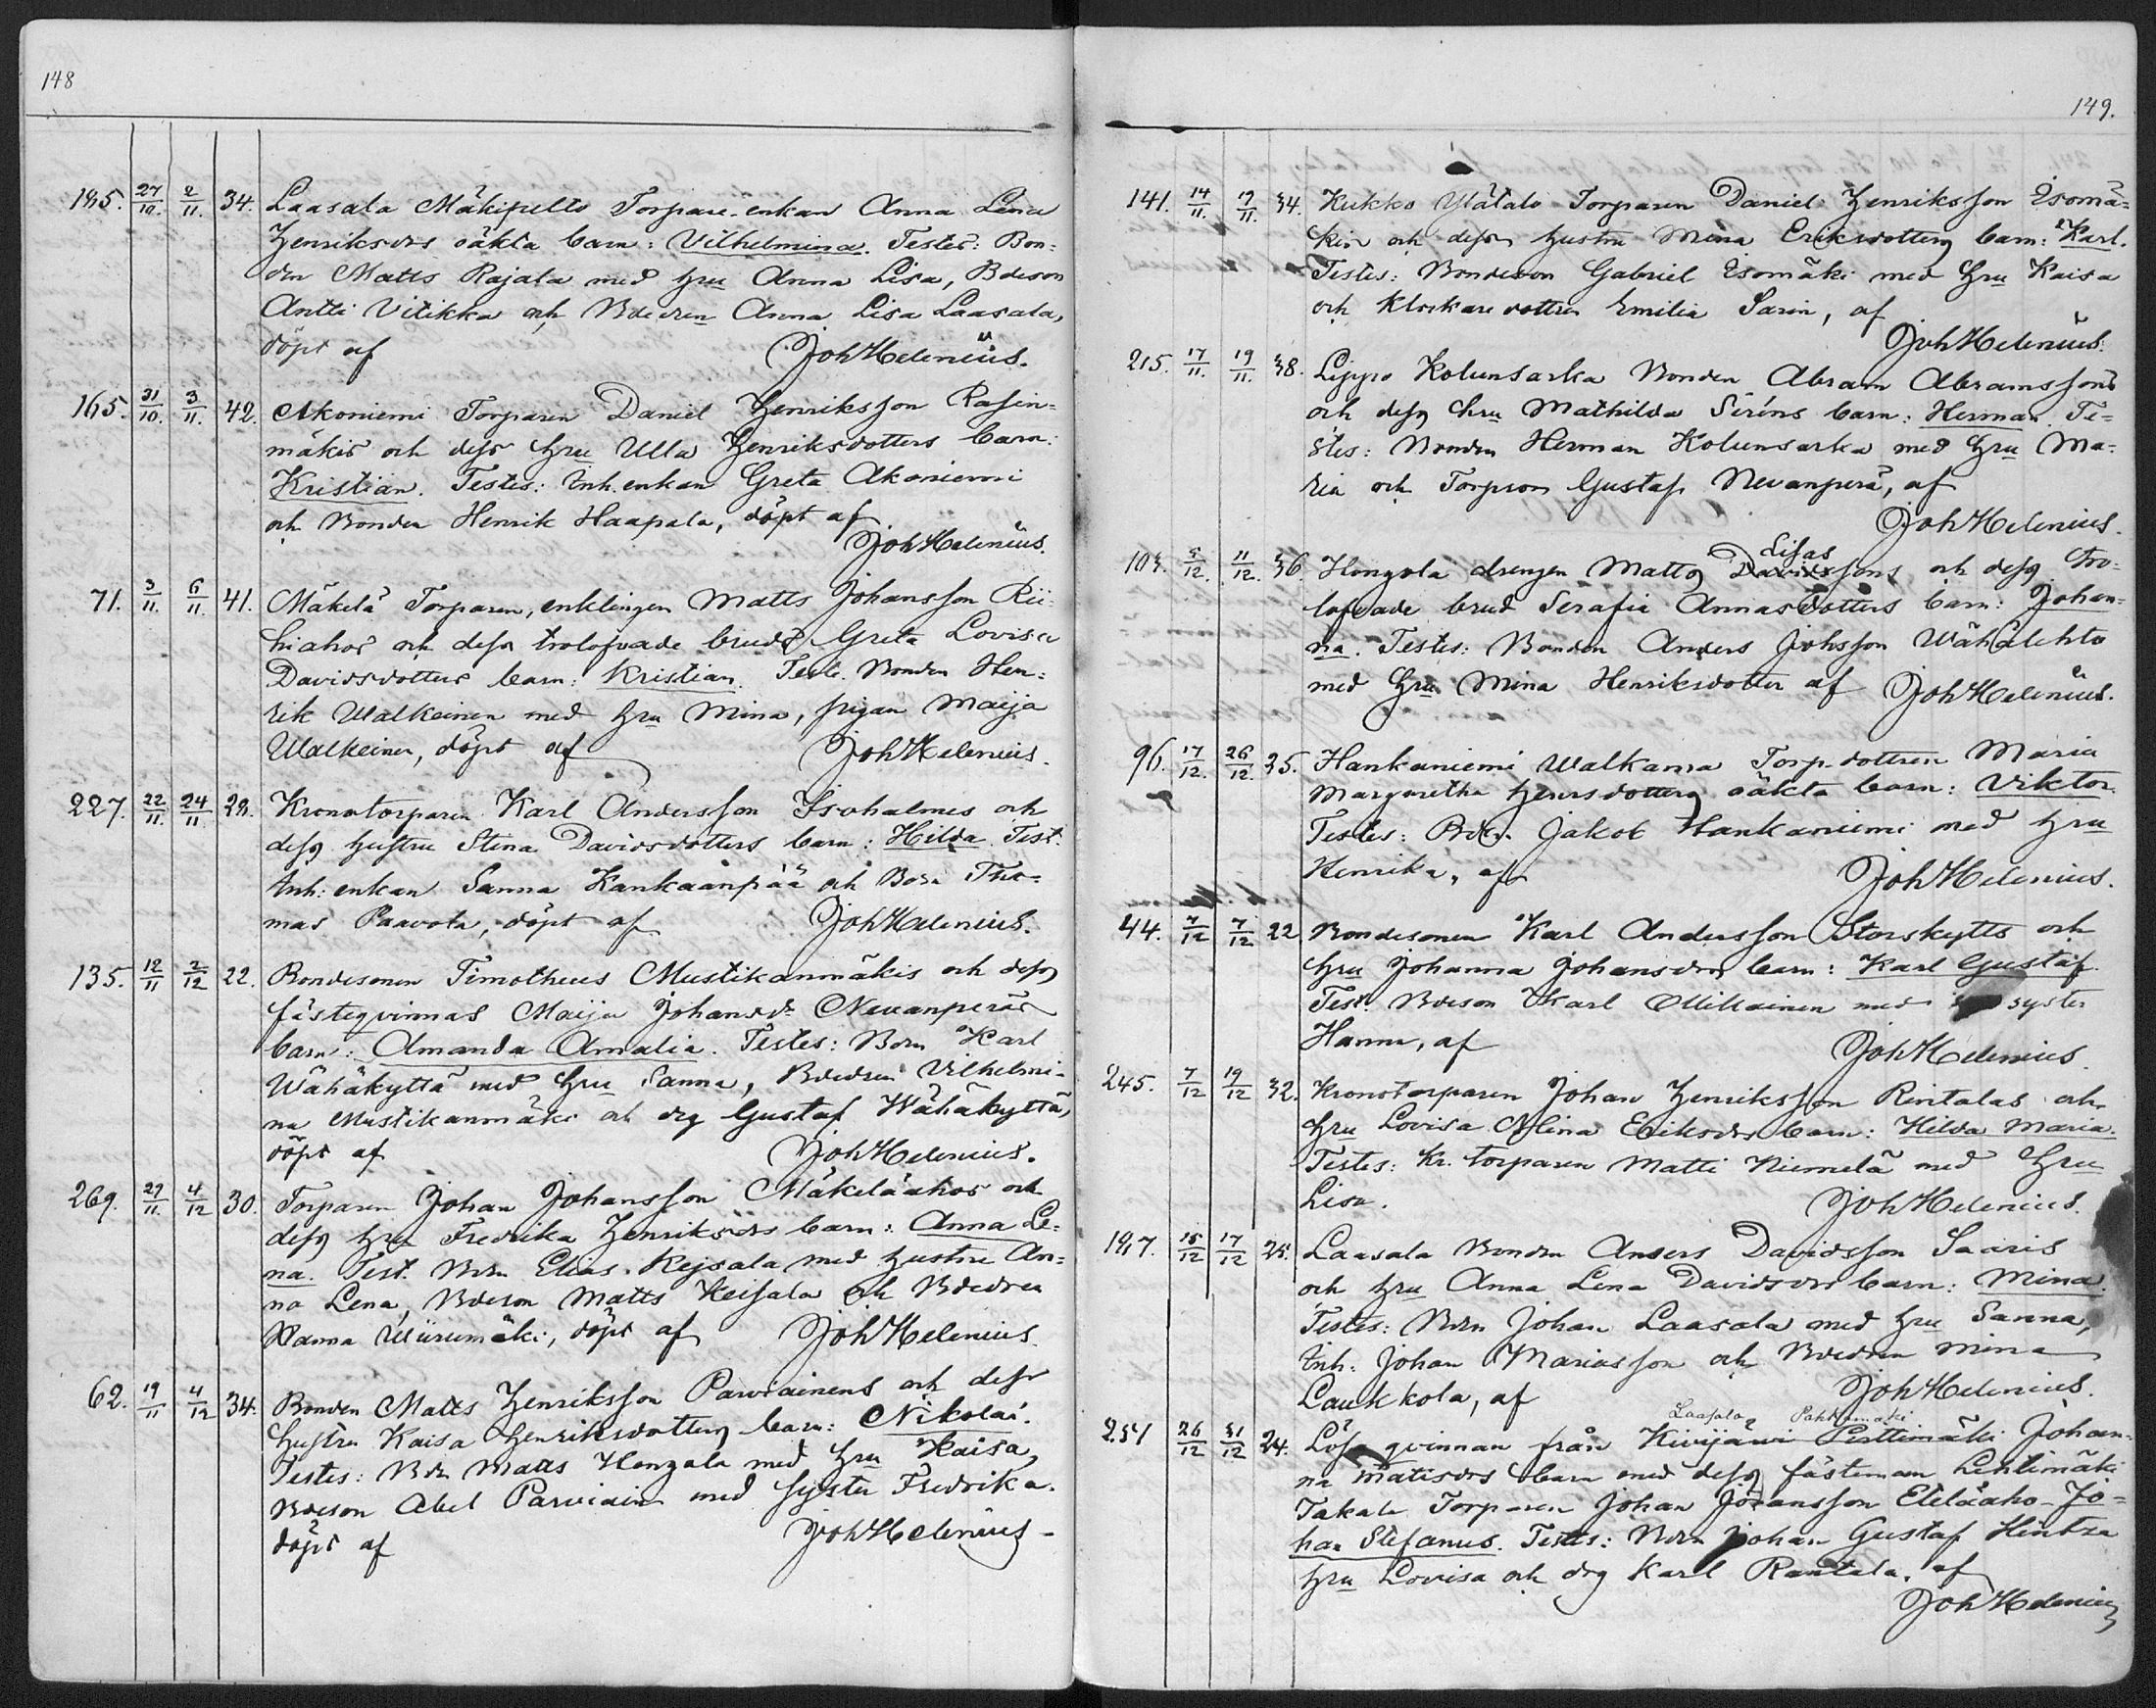 148
185. 27/10. 2/11. 34. Laasala Mäkipelto Torpare-enkan Anna Lena
Henriksdrs oäkta barn: Vilhelmina. Testes: Bon-
den Matts Rajala med hru Anna Lisa, Bdeson
Antti Vitikka och Bdedren Anna Lisa Laasala,
döpt af JohHelenius.
165. 31/10. 3/11. 42. Akoniemi Torparen Daniel Henriksson Rasin-
mäkis och dess hru Ulla Henriksdotters barn:
Kristian. Testes: Inh. enkan Greta Akoniemi
och Bonden Henrik Haapala, döpt af
JohHelenius.
71. 3/11. 6/11. 41. Mäkelä Torparen, enklingen Matts Johansson Rii-
hiahos och dess trolofvade bruds Greta Lovisa
Davidsdotters barn: Kristian. Test. Bonden Hen-
rik Walkeinen med hru Mina, pigan Maija
Walkeinen, döpt af JohHelenius.
227. 22/11. 24/11. 28. Kronotorparen Karl Andersson Isoholmes och
dess hustru Stina Davidsdotters barn: Hilda. Test.
Inh: enkan Sanna Kankaanpää och Bdsn Tho-
mas Paavola, döpt af JohHelenius.
135. 12/11 2/12 22. Bondesonen Timotheus Mustikanmäkis och dess
fästeqvinnas Maija Johansdr Nevanperäs
barn: Amanda Amalia. Testes: Bdn Karl
Wähäkyttä med hru Sanna, Bdedren Vilhelmi-
na Mustikanmäki och drg Gustaf Wähäkyttä,
döpt af JohHelenius.
269. 27/11. 4/12 30. Torparen Johan Johansson Mäkeläahos och
dess hru Fredrika Henriksdrs barn: Anna Le-
na. Test. Bdn Elias Kejsala med hustru An-
na Lena, Bdeson Matts Keisala och Bdedren
Sanna Wiirumäki, döpt af JohHelenius
62. 19/11 4/12 34. Bonden Matts Henriksson Parviainens och dess
hustru Kaisa Henriksdotters barn: Nikolai.
Testes: Bdn Matts Hongala med hru Kaisa,
Bdeson Abel Parviain med syster Fredrika.
döpt af JohHelenius
149.
141. 14/11. 17/11. 34. Kukko Ylätalo Torparen Daniel Henriksson Isomä-
kis och dess hustru Mina Eriksdotters barn: Karl.
Testes: Bondeson Gabriel Isomäki med hru Kaisa
och klockaredottren Emilia Sarin, af
JohHelenius.
215. 17/11. 19/11. 38. Lippo Kolunsarka Bonden Abram Abramssons
och dess hru Mathilda Siréns barn: Herman. Te-
stes: Bonden Herman Kolunsarka med hru Ma-
ria och Torpson Gustaf Nevanperä, af
JohHelenius.
103. 5/12. 11/12. 36. Hongola drengen Matts Davidssons Lisas och dess tro-
lofvade brud Serafia Annasdotters barn: Johan-
na. Testes: Bonden Anders Johsson Wähälehto
med hru Mina Henriksdotter af JohHelenius.
96. 17/12. 26/12. 35. Hankaniemi Walkama Torp-dottren Maria
Margaretha Henrsdotters oäkta barn: Viktor.
Testes: Jakob Hankaniemi med hru
Henrika, af JohHelenius.
44. 7/12 7/12 22 Bondesonen Karl Andersson Storskytts och
hru Johanna Johansdrs barn: Karl Gustaf.
Test. Bdeson Karl Ollikainen med syster
Hanna, af JohHelenius.
245. 7/12 19/12 32. Kronotorparen Johan Henriksson Rintalas och
hru Lovisa Mina Eriksdrs barn: Hilda Maria.
Testes: Kr. torparen Matti Niemelä med hru
Lisa. JohHelenius.
197. 15/12 17/12 25. Laasala Bonden Anders Davidsson Saaris
och hru Anna Lena Davidsdrs barn: Mina.
Testes: Bdn Johan Laasala med hru Sanna,
Inh: Johan Mariasson och Bdedren Mina
Laukkola, af JohHelenius.
Laasala Pahkamäki
254 26/12 31/12 24. Lösa qvinnan från Kivijärvi Perttimäki Johan-
na Matisdrs barn med dess fästeman Lehtimäki
Takala Torparen Johan Johansson Eteläaho - Jo-
han Stefanus. Testes: Bdn Johan Gustaf Hintsa
hru Lovisa och drg Karl Rantala, af
JohHelenius